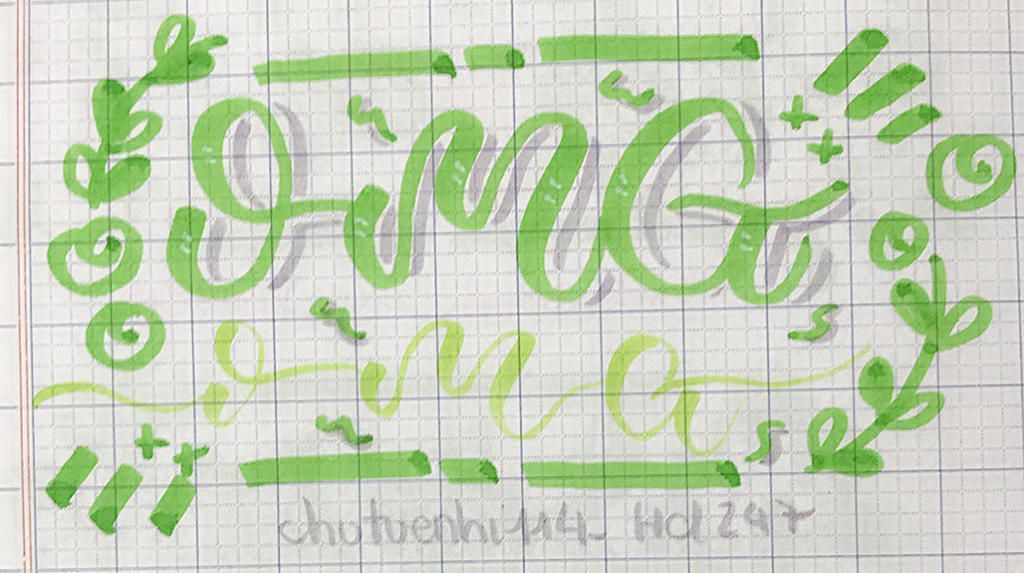 OMG
OMG
chutuenhi114_Hd247